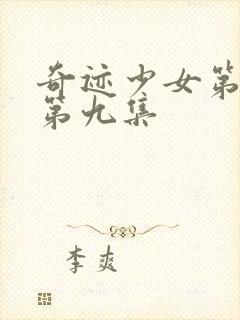 奇迹少女第
第九集
李爽